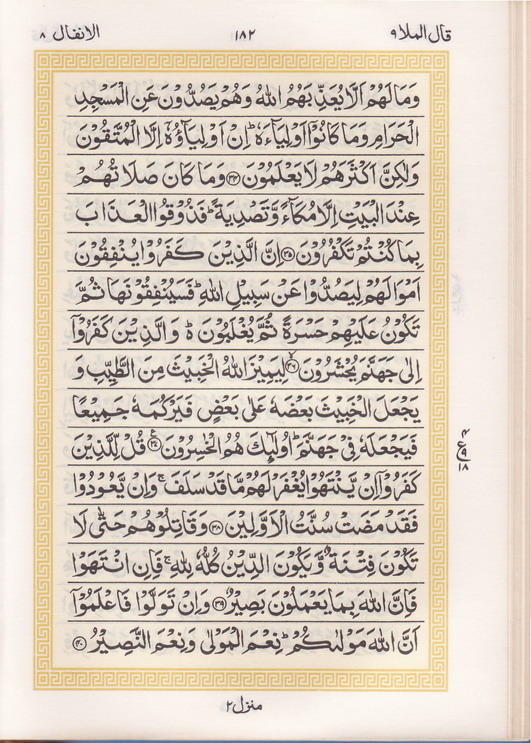 قال الملا٩ ١٨٢ الانفال ٨
وَمَا لَهُمْ اَلَّا يُعَذِّبَهُمُ اللّٰهُ وَهُمْ يَصُدُّوْنَ عَنِ الْمَسْجِدِ
الْحَرَامِ وَمَا كَانُوْٓا اَوْلِيَآءَهٗ ؕ اِنْ اَوْلِيَآؤُهٗٓ اِلَّا الْمُتَّقُوْنَ
وَلٰكِنَّ اَكْثَرَهُمْ لَا يَعْلَمُوْنَ ﴿۳۴﴾ وَمَا كَانَ صَلَاتُهُمْ
عِنْدَ الْبَيْتِ اِلَّا مُكَآءً وَّتَصْدِيَةً ؕ فَذُوْقُوا الْعَذَابَ
بِمَا كُنْتُمْ تَكْفُرُوْنَ ﴿۳۵﴾ اِنَّ الَّذِيْنَ كَفَرُوْا يُنْفِقُوْنَ
اَمْوَالَهُمْ لِيَصُدُّوْا عَنْ سَبِيْلِ اللّٰهِ ؕ فَسَيُنْفِقُوْنَهَا ثُمَّ
تَكُوْنُ عَلَيْهِمْ حَسْرَةً ثُمَّ يُغْلَبُوْنَ ؕ وَالَّذِيْنَ كَفَرُوْٓا
اِلٰى جَهَنَّمَ يُحْشَرُوْنَ ﴿۳۶﴾ۙ لِيَمِيْزَ اللّٰهُ الْخَبِيْثَ مِنَ الطَّيِّبِ وَ
يَجْعَلَ الْخَبِيْثَ بَعْضَهٗ عَلٰى بَعْضٍ فَيَرْكُمَهٗ جَمِيْعًا
فَيَجْعَلَهٗ فِيْ جَهَنَّمَ ؕ اُولٰٓئِكَ هُمُ الْخٰسِرُوْنَ ﴿۳۷﴾ قُلْ لِّلَّذِيْنَ
كَفَرُوْٓا اِنْ يَّنْتَهُوْا يُغْفَرْ لَهُمْ مَّا قَدْ سَلَفَ ۚ وَاِنْ يَّعُوْدُوْا
فَقَدْ مَضَتْ سُنَّتُ الْاَوَّلِيْنَ ﴿۳۸﴾ وَقَاتِلُوْهُمْ حَتّٰى لَا
تَكُوْنَ فِتْنَةٌ وَّيَكُوْنَ الدِّيْنُ كُلُّهٗ لِلّٰهِ ۚ فَاِنِ انْتَهَوْا
فَاِنَّ اللّٰهَ بِمَا يَعْمَلُوْنَ بَصِيْرٌ ﴿۳۹﴾ وَاِنْ تَوَلَّوْا فَاعْلَمُوْٓا
اَنَّ اللّٰهَ مَوْلٰىكُمْ ؕ نِعْمَ الْمَوْلٰى وَنِعْمَ النَّصِيْرُ ﴿۴۰﴾
۴
ع ۹
۱۸
منزل ۲